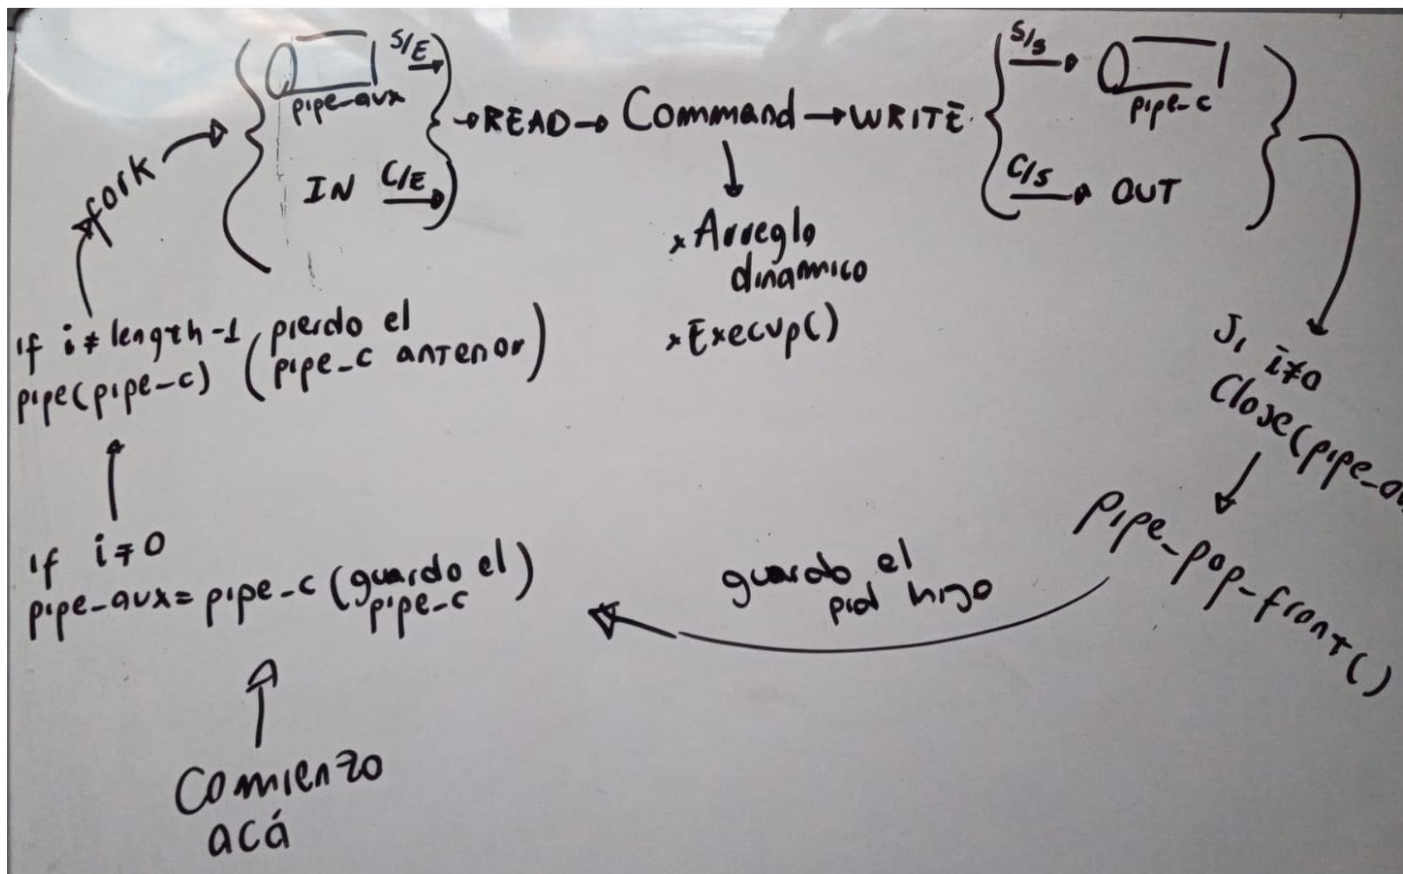 S/E
pipe-aux
IN C/E
READ
Command
WRITE
S/s
pipe-c
C/s OUT
fork
x Arreglo
dinamico
x Execvp()
if i ≠ length-1 (pierdo el
pipe(pipe-c) pipe_c anterior)
Si i≠0
Close(pipe-au
pipe-pop-front()
guardo el
pid hijo
if i≠0
pipe-aux = pipe-c (guardo el)
pipe-c
Comienzo
acá